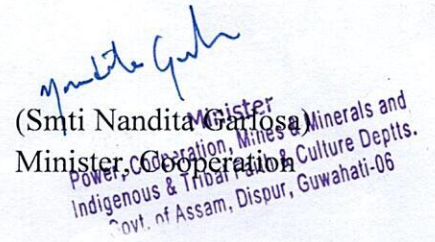 (Smti Nandita Garlosa)
Minister, Cooperation
Minister
Power, Cooperation, Mines & Minerals and
Indigenous & Tribal Faith & Culture Deptts.
Govt. of Assam, Dispur, Guwahati-06